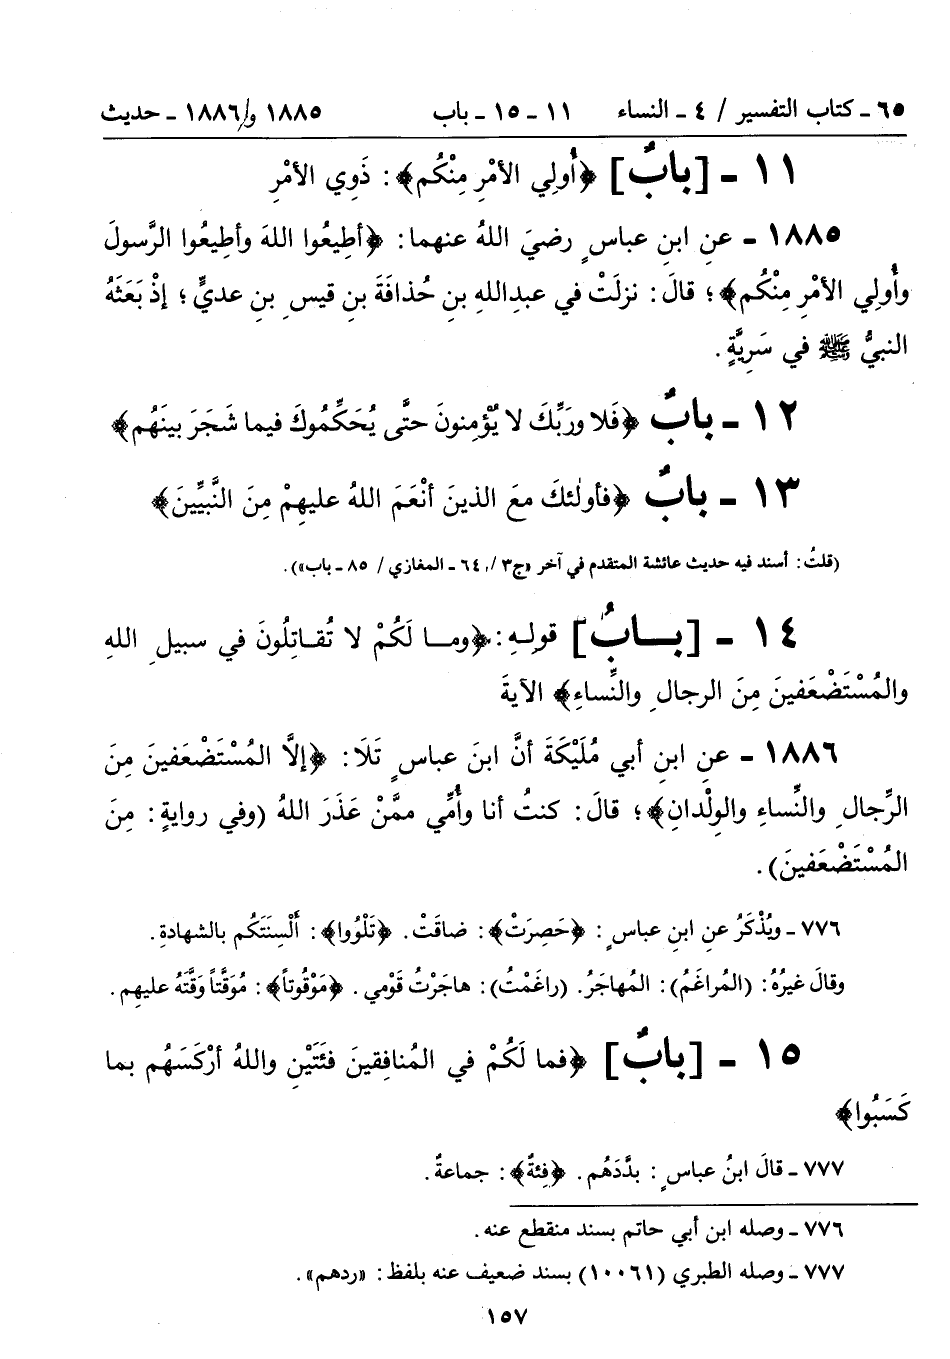 ٦٥ ـ كتاب التفسير / ٤ ـ النساء ١١ ـ ١٥ ـ باب ١٨٨٥ و/١٨٨٦ ـ حديث
١١ ـ [بابٌ] ﴿أُولِي الأمْرِ مِنْكُم﴾: ذَوِي الأمْرِ
١٨٨٥ ـ عنِ ابنِ عباسٍ رضيَ اللهُ عنهما: ﴿أطِيعُوا اللهَ وأطِيعُوا الرَّسولَ
وأُولِي الأمْرِ مِنْكُم﴾؛ قالَ: نزلَتْ في عبدِاللهِ بنِ حُذافَةَ بنِ قيسِ بنِ عديٍّ؛ إذْ بَعَثَهُ
النبيُّ ﷺ في سَرِيَّةٍ.
١٢ ـ بابٌ ﴿فَلا ورَبِّكَ لا يُؤْمِنونَ حتَّى يُحَكِّمُوكَ فيما شَجَرَ بينَهُم﴾
١٣ ـ بابٌ ﴿فأولٰئكَ معَ الذينَ أنْعَمَ اللهُ عليهِمْ مِنَ النَّبيِّينَ﴾
(قلتُ: أسند فيه حديث عائشة المتقدم في آخر «ج٣ /٦٤ ـ المغازي / ٨٥ ـ باب»).
١٤ ـ [بــابُ] قولِهِ: ﴿ومــا لَكُمْ لا تُقـاتِلُونَ في سبيلِ اللهِ
والمُسْتَضْعَفينَ مِنَ الرجالِ والنِّساءِ﴾ الآيةَ
١٨٨٦ ـ عنِ ابنِ أبي مُلَيْكَةَ أنَّ ابنَ عباسٍ تَلَا: ﴿إلَّا المُسْتَضْعَفينَ مِنَ
الرِّجالِ والنِّساءِ والوِلْدانِ﴾؛ قالَ: كنتُ أنا وأُمِّي ممَّنْ عَذَرَ اللهُ (وفي روايةٍ: مِنَ
المُسْتَضْعَفينَ).
٧٧٦ ـ ويُذْكَرُ عنِ ابنِ عباسٍ: ﴿حَصِرَتْ﴾: ضاقَتْ. ﴿تَلْوُوا﴾: أَلْسِنَتَكُم بالشهادةِ.
وقالَ غيرُهُ: (المُراغَمُ): المُهاجَرُ. (راغَمْتُ): هاجَرْتُ قَوْمي. ﴿مَوْقُوتاً﴾: مُوَقَّتاً وَقَّتَهُ عليهِم.
١٥ ـ [بابٌ] ﴿فما لَكُمْ في المُنافِقينَ فئَتَيْنِ واللهُ أرْكَسَهُم بما
كَسَبُوا﴾
٧٧٧ ـ قالَ ابنُ عباسٍ: بدَّدَهُم. ﴿فِئةٌ﴾: جماعةٌ.
٧٧٦ ـ وصله ابن أبي حاتم بسند منقطع عنه.
٧٧٧ ـ وصله الطبري (١٠٠٦١) بسند ضعيف عنه بلفظ: «ردهم».
١٥٧